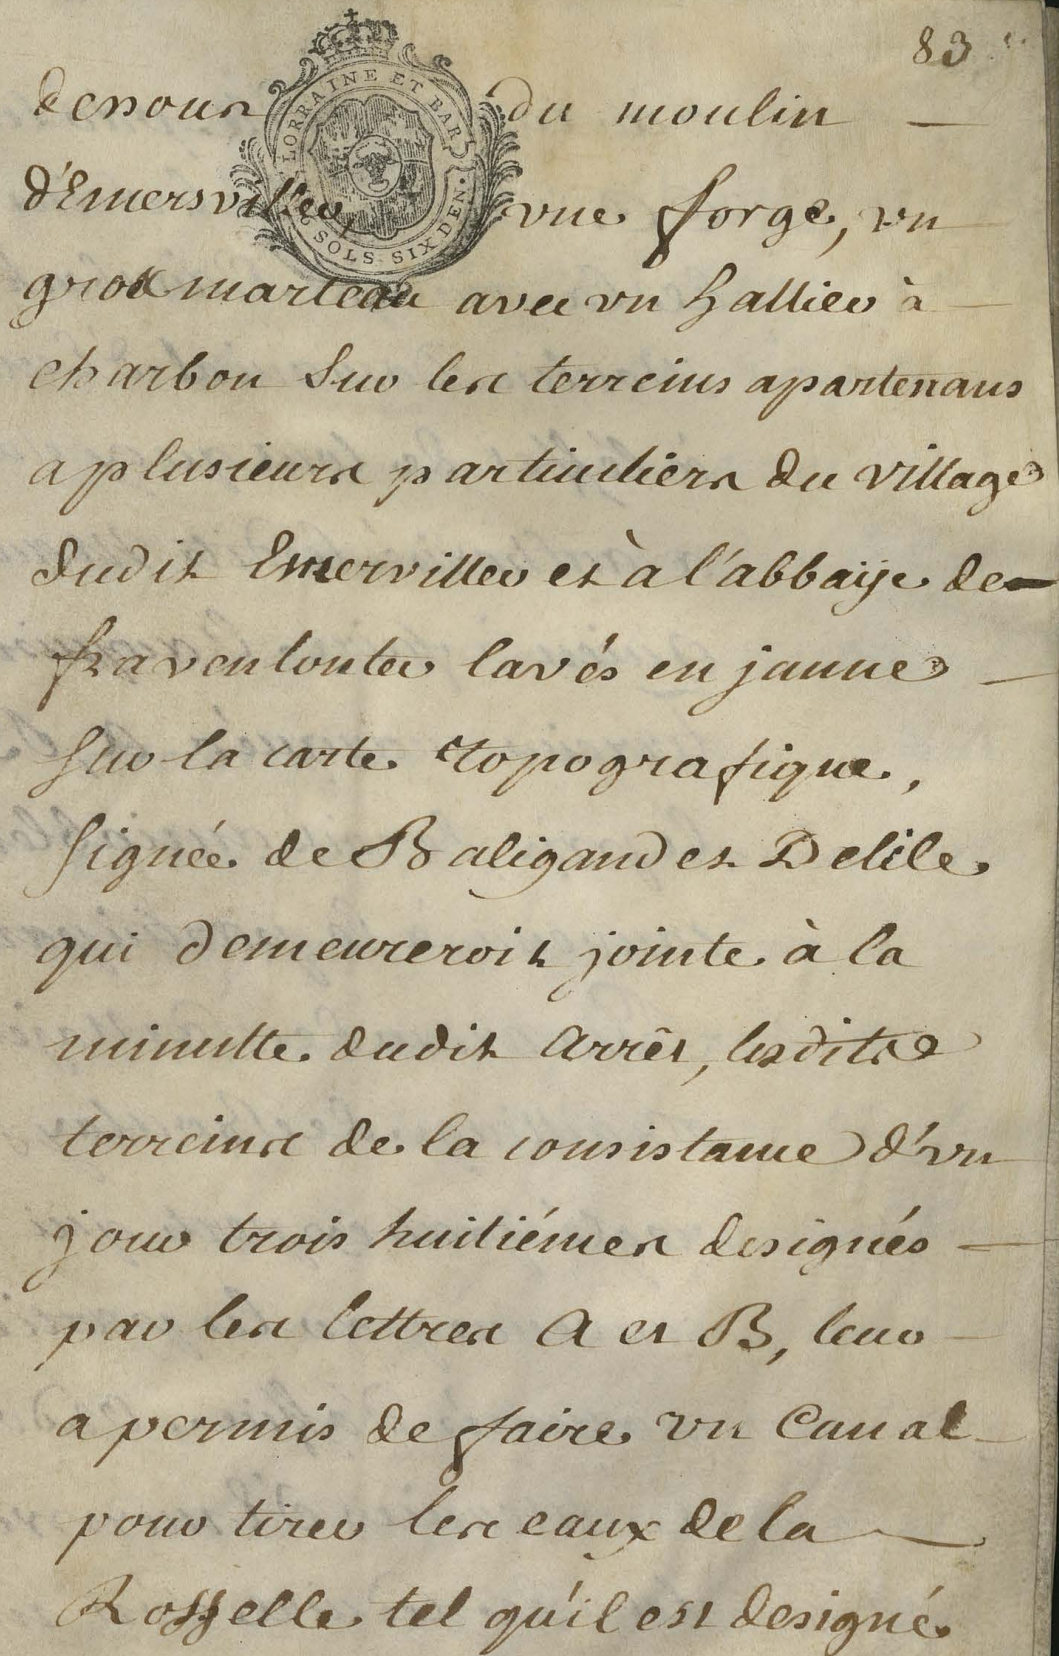 83
LORRAINE ET BAR
SOLS SIX DEN.
dessous du moulin
d'Emersville, vne forge, vn
gros marteau avec vn hallier à
charbon sur les terreins apartenans
a plusieurs particuliers du village
dudit Emerville et à l'abbaÿe de
fraventoute lavés en jaune
sur la carte topografique,
signée de Baligand et Delile
qui demeureroit jointe à la
minutte dudit arrêt, lesdits
terreins de la consistance d'vn
jour trois huitiémes designés
par les lettres A et B, leur
a permis de faire vn Canal
pour tirer les eaux de la
Rosselle tel qu'il est designé